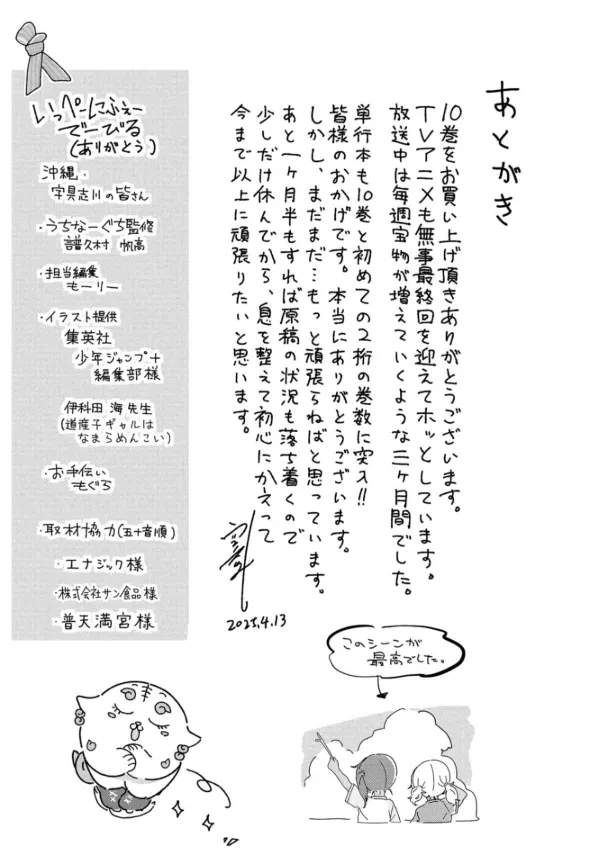 あとがき
10巻をお買い上げ頂きありがとうございます。
TVアニメも無事最終回を迎えてホッとしています。
放送中は毎週宝物が増えていくような三ヶ月間でした。
単行本も10巻と初めての2桁の巻数に突入!!
皆様のおかげです。本当にありがとうございます。
しかし、まだまだ…もっと頑張らねばと思っています。
あと一ヶ月半もすれば原稿の状況も落ち着くので
少しだけ休んでから、息を整えて初心にかえって
今まで以上に頑張りたいと思います。
2025.4.13
このシーンが
最高でした。
いっぺーにふぇー
でーびる
(ありがとう)
沖縄・
宇具志川の皆さん
・うちなーぐち監修
譜久村 帆高
・担当編集
もーリー
・イラスト提供
集英社
少年ジャンプ+
編集部様
伊科田 海先生
(道産子ギャルは
なまらめんこい)
・お手伝い
もぐら
・取材協力(五十音順)
・エナジック様
・株式会社サン食品様
・普天満宮様